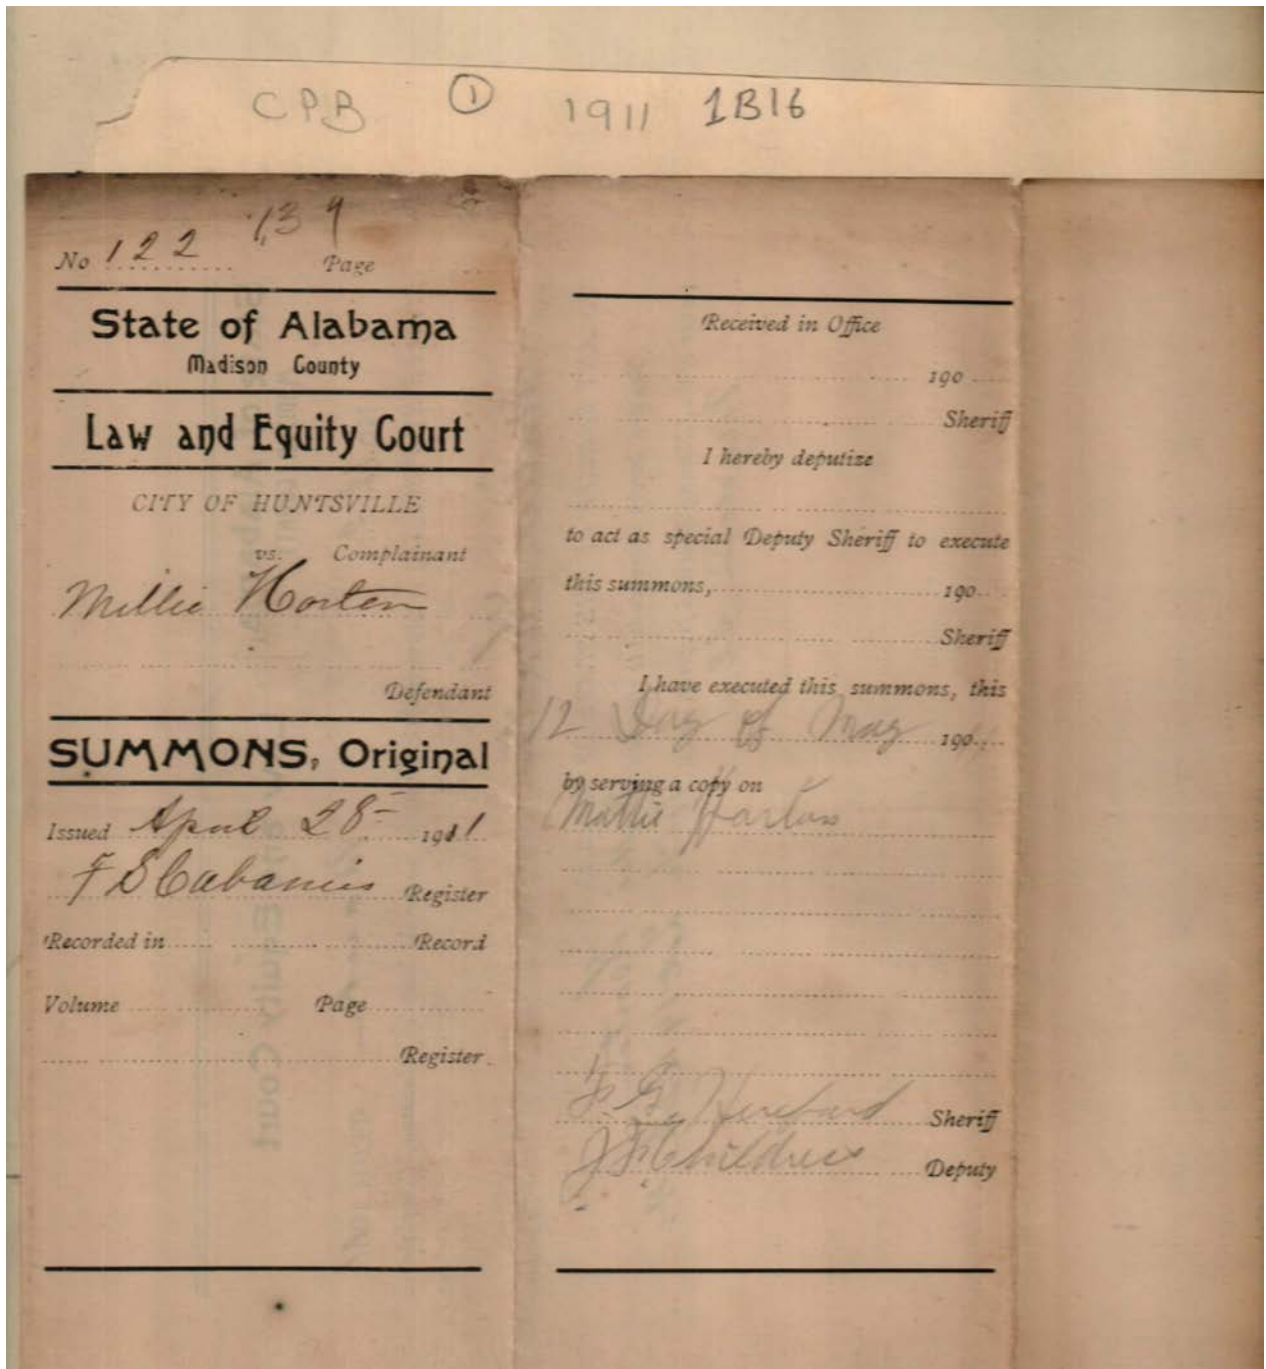 CPB 1 1911 1B16
139
No 122 Page
State of Alabama
Madison County
Law and Equity Court
CITY OF HUNTSVILLE
vs. Complainant
Millie Horton
Defendant
SUMMONS, Original
Issued April 28 1911
F S Cabaniss Register
Recorded in Record
Volume Page
Register
Received in Office
190
Sheriff
I hereby deputize
to act as special Deputy Sheriff to execute
this summons, 190
Sheriff
I have executed this summons, this
12 Day of May 190
by serving a copy on
Mattie Horton
Sheriff
J Childress Deputy